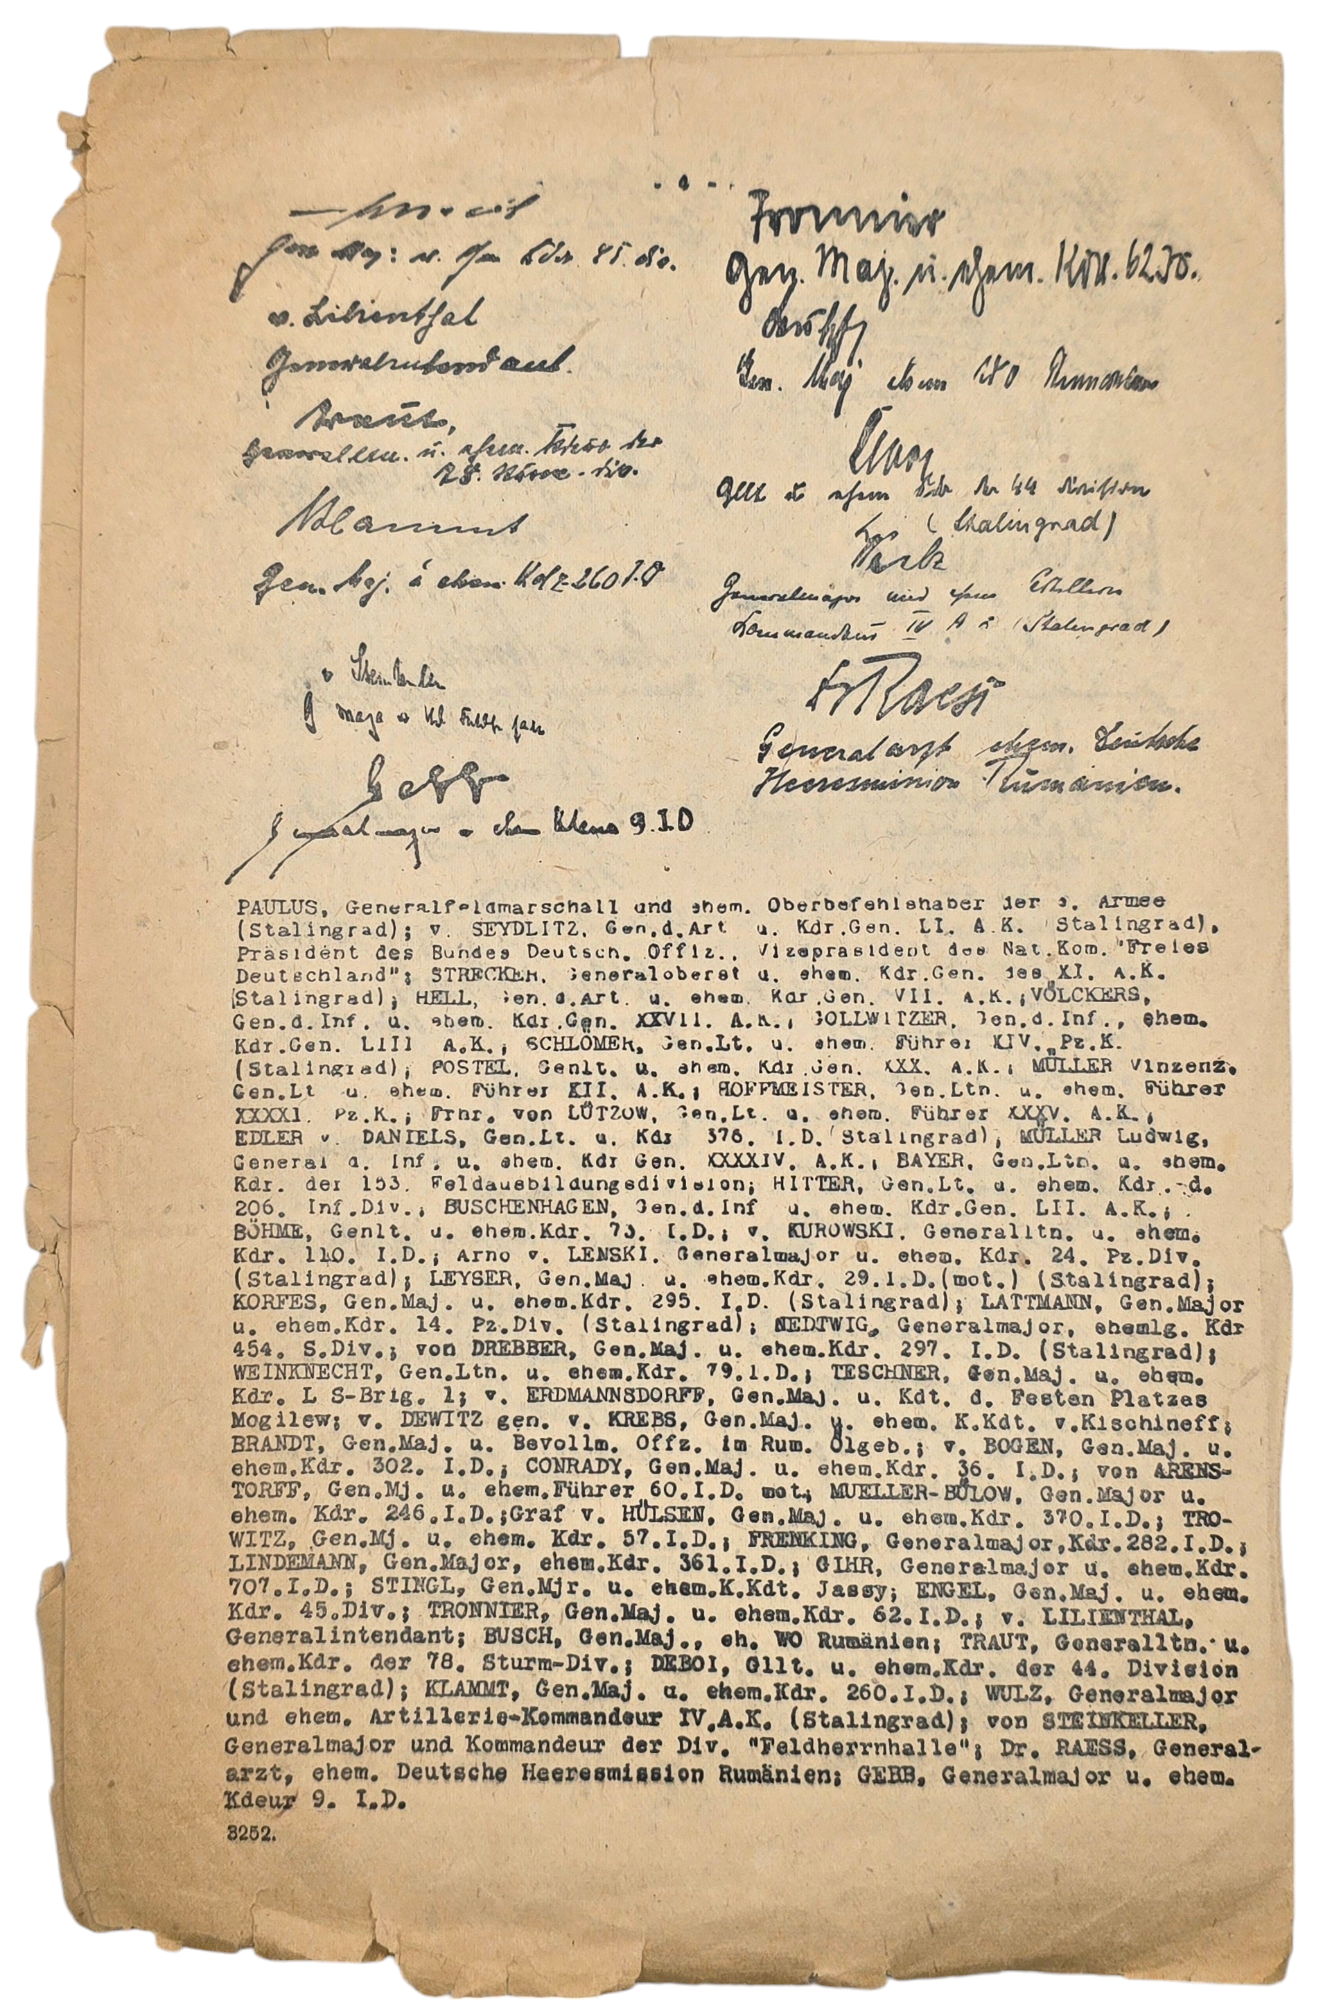 - 4 -
Gen Maj:
v. Lilienthal
Generalintendant.
Traut,
Generalltn. u. ehem. Kdeur der
78. Sturm-div.
Klammt
Gen. Maj. u ehem. Kdr 260 I.D
v Steinkeller
Gebb
Generalmajor u ehem Kdeur 9.I.D
Tronnier
Gen. Maj. u. ehem. Kdr. 62 ID.
Gen. Maj ehem WO Rumänien
Gllt u ehem Kdr der 44 Division
(Stalingrad)
Wulz
Generalmajor und ehem Artillerie
Kommandeur IV A K (Stalingrad)
Dr Raess
Generalarzt ehem. Deutsche
Heeresmission Rumänien.
PAULUS, Generalfeldmarschall und ehem. Oberbefehlshaber der 6. Armee
(Stalingrad); v. SEYDLITZ, Gen.d.Art u. Kdr.Gen. LI. A.K. (Stalingrad),
Präsident des Bundes Deutsch. Offiz., Vizepräsident des Nat.Kom. "Freies
Deutschland"; STRECKER, Generaloberst u. ehem. Kdr.Gen. des XI. A.K.
(Stalingrad); HELL, Gen.d.Art. u. ehem. Kdr.Gen. VII. A.K.;VÖLCKERS,
Gen.d.Inf. u. ehem. Kdr.Gen. XXVII. A.K.; GOLLWITZER, Gen.d.Inf., ehem.
Kdr.Gen. LIII A.K.; SCHLÖMER, Gen.Lt. u. ehem. Führer XIV. Pz.K.
(Stalingrad); POSTEL, Genlt. u. ehem. Kdr.Gen. XXX. A.K.; MÜLLER Vinzenz,
Gen.Lt u. ehem. Führer XII. A.K.; HOFFMEISTER, Gen.Ltn. u. ehem. Führer
XXXXI. Pz.K.; Frhr. von LÜTZOW, Gen.Lt. u. ehem. Führer XXXV. A.K.;
EDLER v. DANIELS, Gen.Lt. u. Kdr 376. I.D. (Stalingrad); MÜLLER Ludwig,
General d. Inf. u. ehem. Kdr Gen. XXXXIV. A.K.; BAYER, Gen.Ltn. u. ehem.
Kdr. der 153. Feldausbildungsdivision; HITTER, Gen.Lt. u. ehem. Kdr. d.
206. Inf.Div.; BUSCHENHAGEN, Gen.d.Inf u. ehem. Kdr.Gen. LII. A.K.;
BÖHME, Genlt. u. ehem.Kdr. 73. I.D.; v. KUROWSKI, Generalltn. u. ehem.
Kdr. 110. I.D.; Arno v. LENSKI, Generalmajor u. ehem. Kdr. 24. Pz.Div.
(Stalingrad); LEYSER, Gen.Maj. u. ehem.Kdr. 29.I.D.(mot.) (Stalingrad);
KORFES, Gen.Maj. u. ehem.Kdr. 295. I.D. (Stalingrad); LATTMANN, Gen.Major
u. ehem.Kdr. 14. Pz.Div. (Stalingrad); NEDTWIG, Generalmajor, ehemlg. Kdr
454. S.Div.; von DREBBER, Gen.Maj. u. ehem.Kdr. 297. I.D. (Stalingrad);
WEINKNECHT, Gen.Ltn. u. ehem.Kdr. 79.I.D.; TESCHNER, Gen.Maj. u. ehem.
Kdr. L S-Brig. 1; v. ERDMANNSDORFF, Gen.Maj. u. Kdt. d. Festen Platzes
Mogilew; v. DEWITZ gen. v. KREBS, Gen.Maj. u. ehem. K.Kdt. v.Kischineff;
BRANDT, Gen.Maj. u. Bevollm. Offz. im Rum. Ölgeb.; v. BOGEN, Gen.Maj. u.
ehem.Kdr. 302. I.D.; CONRADY, Gen.Maj. u. ehem.Kdr. 36. I.D.; von ARENS-
TORFF, Gen.Mj. u. ehem.Führer 60.I.D. mot; MUELLER-BÜLOW, Gen.Major u.
ehem. Kdr. 246.I.D.;Graf v. HÜLSEN, Gen.Maj. u. ehem.Kdr. 370.I.D.; TRO-
WITZ, Gen.Mj. u. ehem. Kdr. 57.I.D.; FRENKING, Generalmajor,Kdr.282.I.D.;
LINDEMANN, Gen.Major, ehem.Kdr. 361.I.D.; GIHR, Generalmajor u. ehem.Kdr.
707.I.D.; STINGL, Gen.Mjr. u. ehem.K.Kdt. Jassy; ENGEL, Gen.Maj. u. ehem.
Kdr. 45.Div.; TRONNIER, Gen.Maj. u. ehem.Kdr. 62.I.D.; v. LILIENTHAL,
Generalintendant; BUSCH, Gen.Maj., eh. WO Rumänien; TRAUT, Generalltn. u.
ehem.Kdr. der 78. Sturm-Div.; DEBOI, Gllt. u. ehem.Kdr. der 44. Division
(Stalingrad); KLAMMT, Gen.Maj. u. ehem.Kdr. 260.I.D.; WULZ, Generalmajor
und ehem. Artillerie-Kommandeur IV.A.K. (Stalingrad); von STEINKELLER,
Generalmajor und Kommandeur der Div. "Feldherrnhalle"; Dr. RAESS, General-
arzt, ehem. Deutsche Heeresmission Rumänien; GEBB, Generalmajor u. ehem.
Kdeur 9. I.D.
3252.